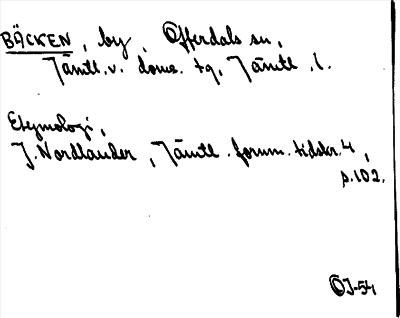 BÄCKEN, by, Offerdals sn,
Jämtl. v. doms. tg, Jämtl. l.
Etymologi,
J. Nordlander, Jämtl. fornm. tidskr. 4,
s. 102.
ÖJ-54